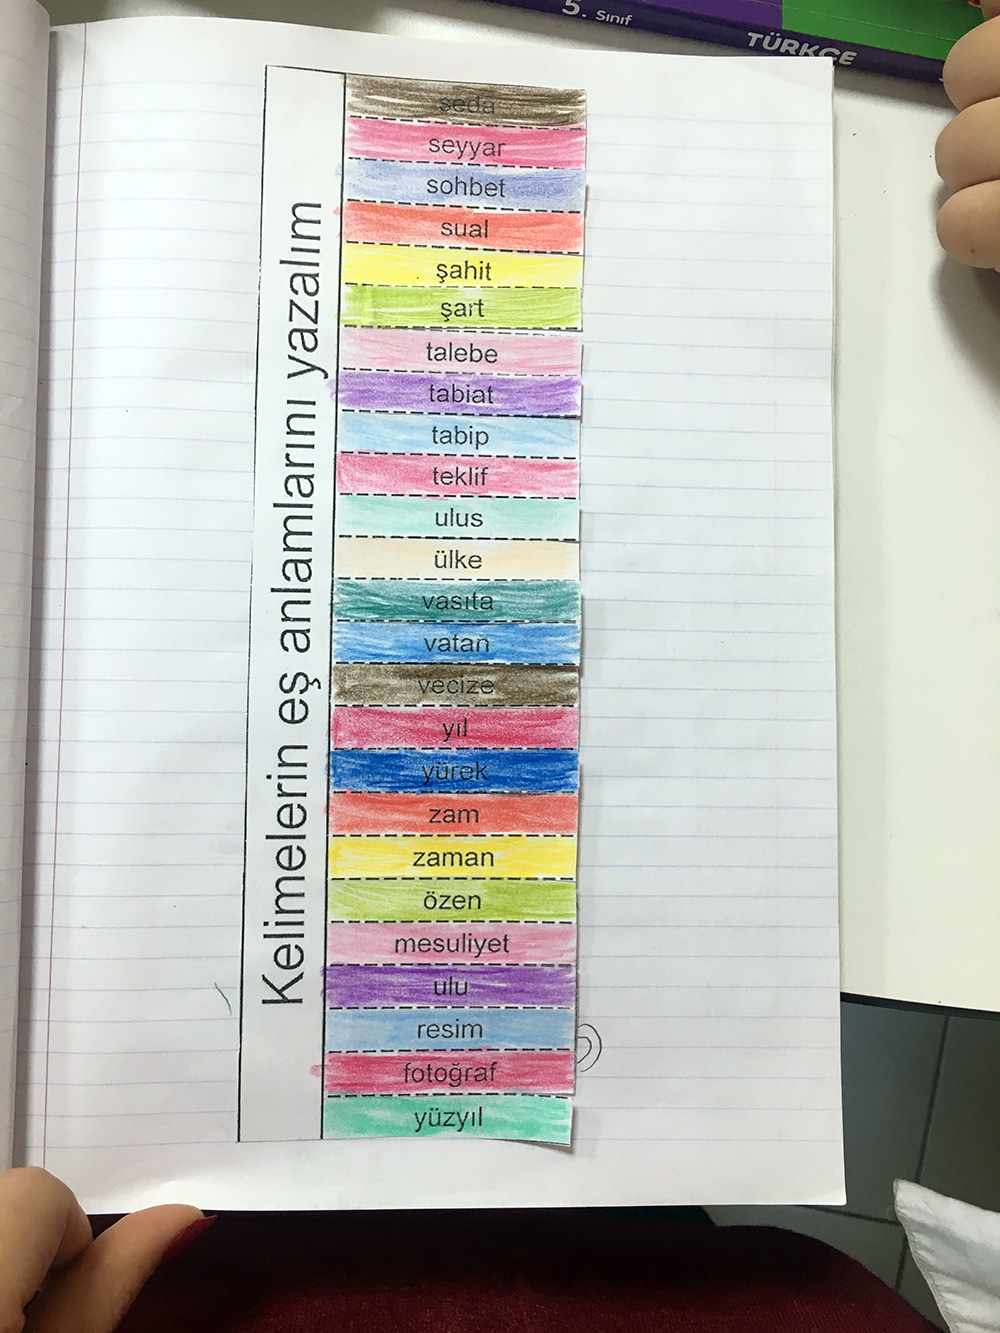 5. Sınıf
TÜRKÇE
Kelimelerin eş anlamlarını yazalım
seda
seyyar
sohbet
sual
şahit
şart
talebe
tabiat
tabip
teklif
ulus
ülke
vasıta
vatan
vecize
yıl
yürek
zam
zaman
özen
mesuliyet
ulu
resim
fotoğraf
yüzyıl